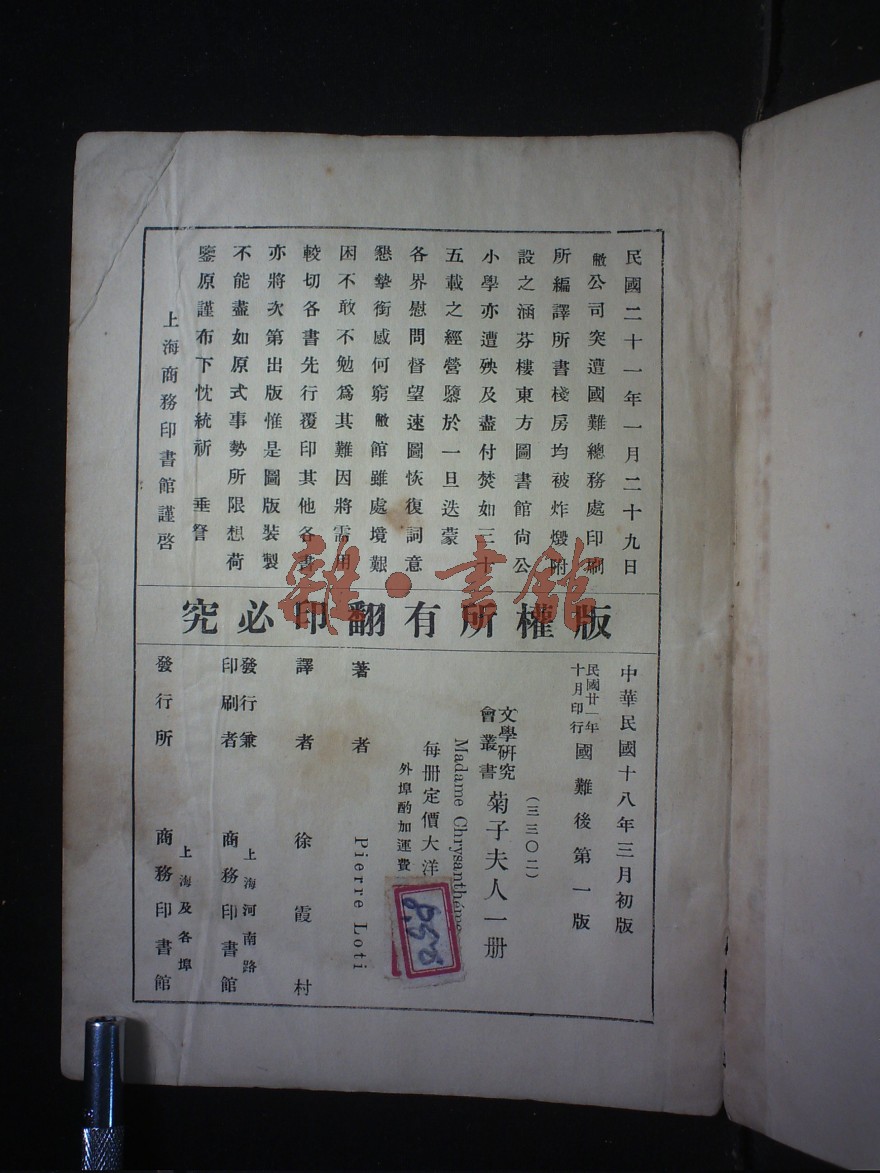 民國二十一年一月二十九日
敝公司突遭國難總務處印刷
所編譯所書棧房均被炸燬附
設之涵芬樓東方圖書館尙公
小學亦遭殃及盡付焚如三十
五載之經營隳於一旦迭蒙
各界慰問督望速圖恢復詞意
懇摯銜感何窮敝館雖處境艱
困不敢不勉爲其難因將需用
較切各書先行覆印其他各書
亦將次第出版惟是圖版裝製
不能盡如原式事勢所限想荷
鑒原謹布下忱統祈 垂詧
上海商務印書館謹啓
版權所有翻印必究
中華民國十八年三月初版
民國廿一年十月印行 國難後第一版
(三三〇二)
文學研究會叢書 菊子夫人一册
Madame Chrysanthéme
每册定價大洋
外埠酌加運費
著者 Pierre Loti
譯者 徐霞村
發行兼印刷者 上海河南路 商務印書館
發行所 上海及各埠 商務印書館
雜·書館